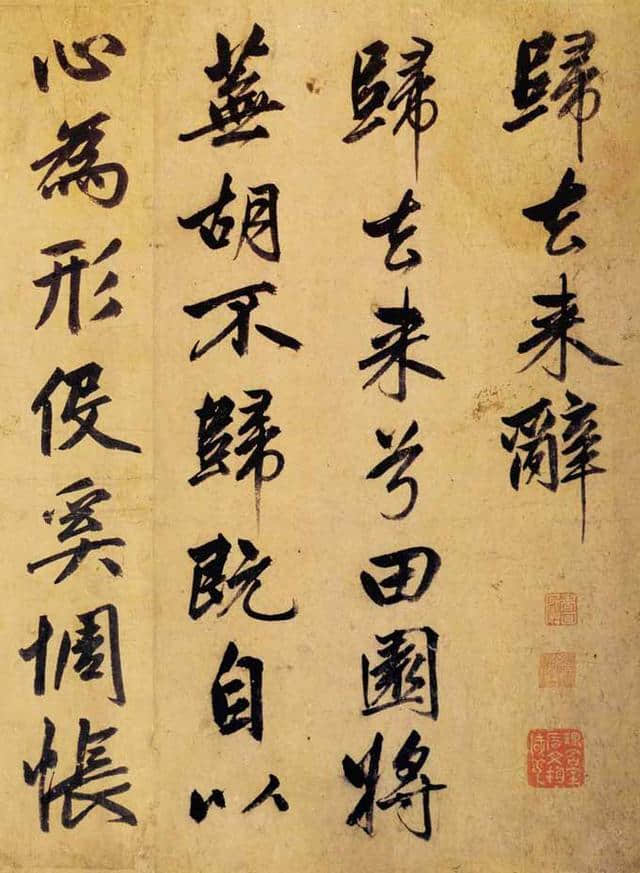 歸去来辭
歸去来兮田園將
蕪胡不歸既自以
心為形役奚惆悵